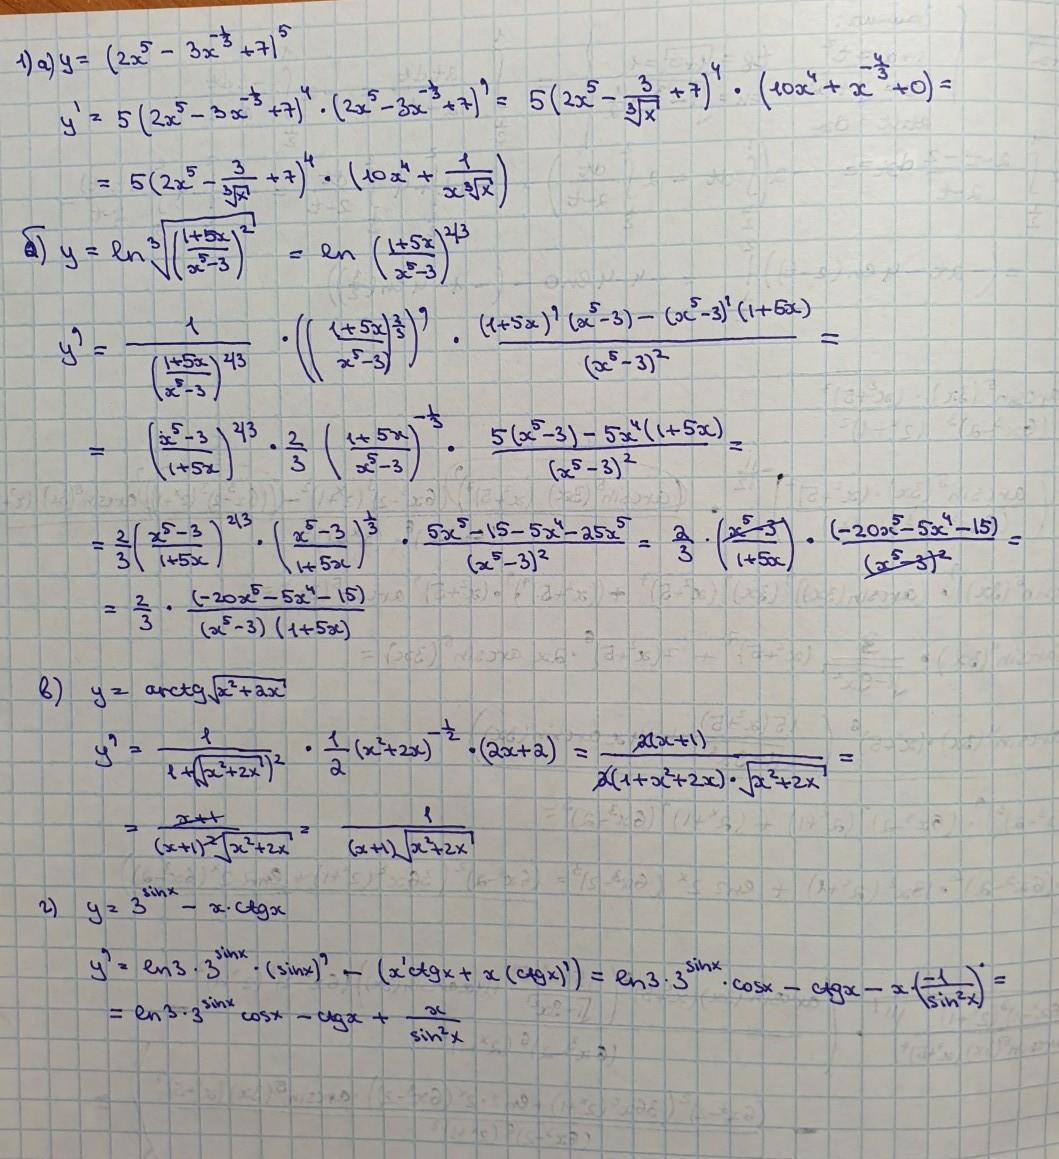 1) a) y = (2x⁵ − 3x^(−1/3) + 7)⁵
y' = 5(2x⁵ − 3x^(−1/3) + 7)⁴ · (2x⁵ − 3x^(−1/3) + 7)' = 5(2x⁵ − 3/∛x + 7)⁴ · (10x⁴ + x^(−4/3) + 0) =
= 5(2x⁵ − 3/∛x + 7)⁴ · (10x⁴ + 1/(x∛x))
б) y = ln ∛(((1+5x)/(x⁵−3))²) = ln ((1+5x)/(x⁵−3))^(2/3)
y' = 1/((1+5x)/(x⁵−3))^(2/3) · (((1+5x)/(x⁵−3))^(2/3))' · ((1+5x)'(x⁵−3) − (x⁵−3)'(1+5x))/(x⁵−3)² =
= ((x⁵−3)/(1+5x))^(2/3) · 2/3 ((1+5x)/(x⁵−3))^(−1/3) · (5(x⁵−3) − 5x⁴(1+5x))/(x⁵−3)² =
= 2/3 ((x⁵−3)/(1+5x))^(2/3) · ((x⁵−3)/(1+5x))^(1/3) · (5x⁵−15−5x⁴−25x⁵)/(x⁵−3)² = 2/3 · ((x⁵−3)/(1+5x)) · (−20x⁵−5x⁴−15)/(x⁵−3)² =
= 2/3 · (−20x⁵−5x⁴−15)/((x⁵−3)(1+5x))
в) y = arctg√(x²+2x)
y' = 1/(1+(√(x²+2x))²) · 1/2 (x²+2x)^(−1/2) · (2x+2) = 2(x+1)/(2(1+x²+2x) · √(x²+2x)) =
= (x+1)/((x+1)²√(x²+2x)) = 1/((x+1)√(x²+2x))
г) y = 3^(sinx) − x·ctgx
y' = ln3·3^(sinx)·(sinx)' − (x'ctgx + x(ctgx)') = ln3·3^(sinx)·cosx − ctgx − x·(−1/sin²x) =
= ln3·3^(sinx) cosx − ctgx + x/sin²x